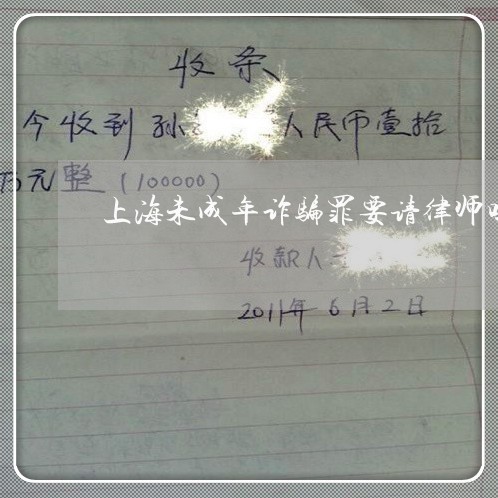 收条
今收到孙 人民币壹拾
万元整（100000）
上海未成年诈骗罪要请律师
收款人
2011年6月2日